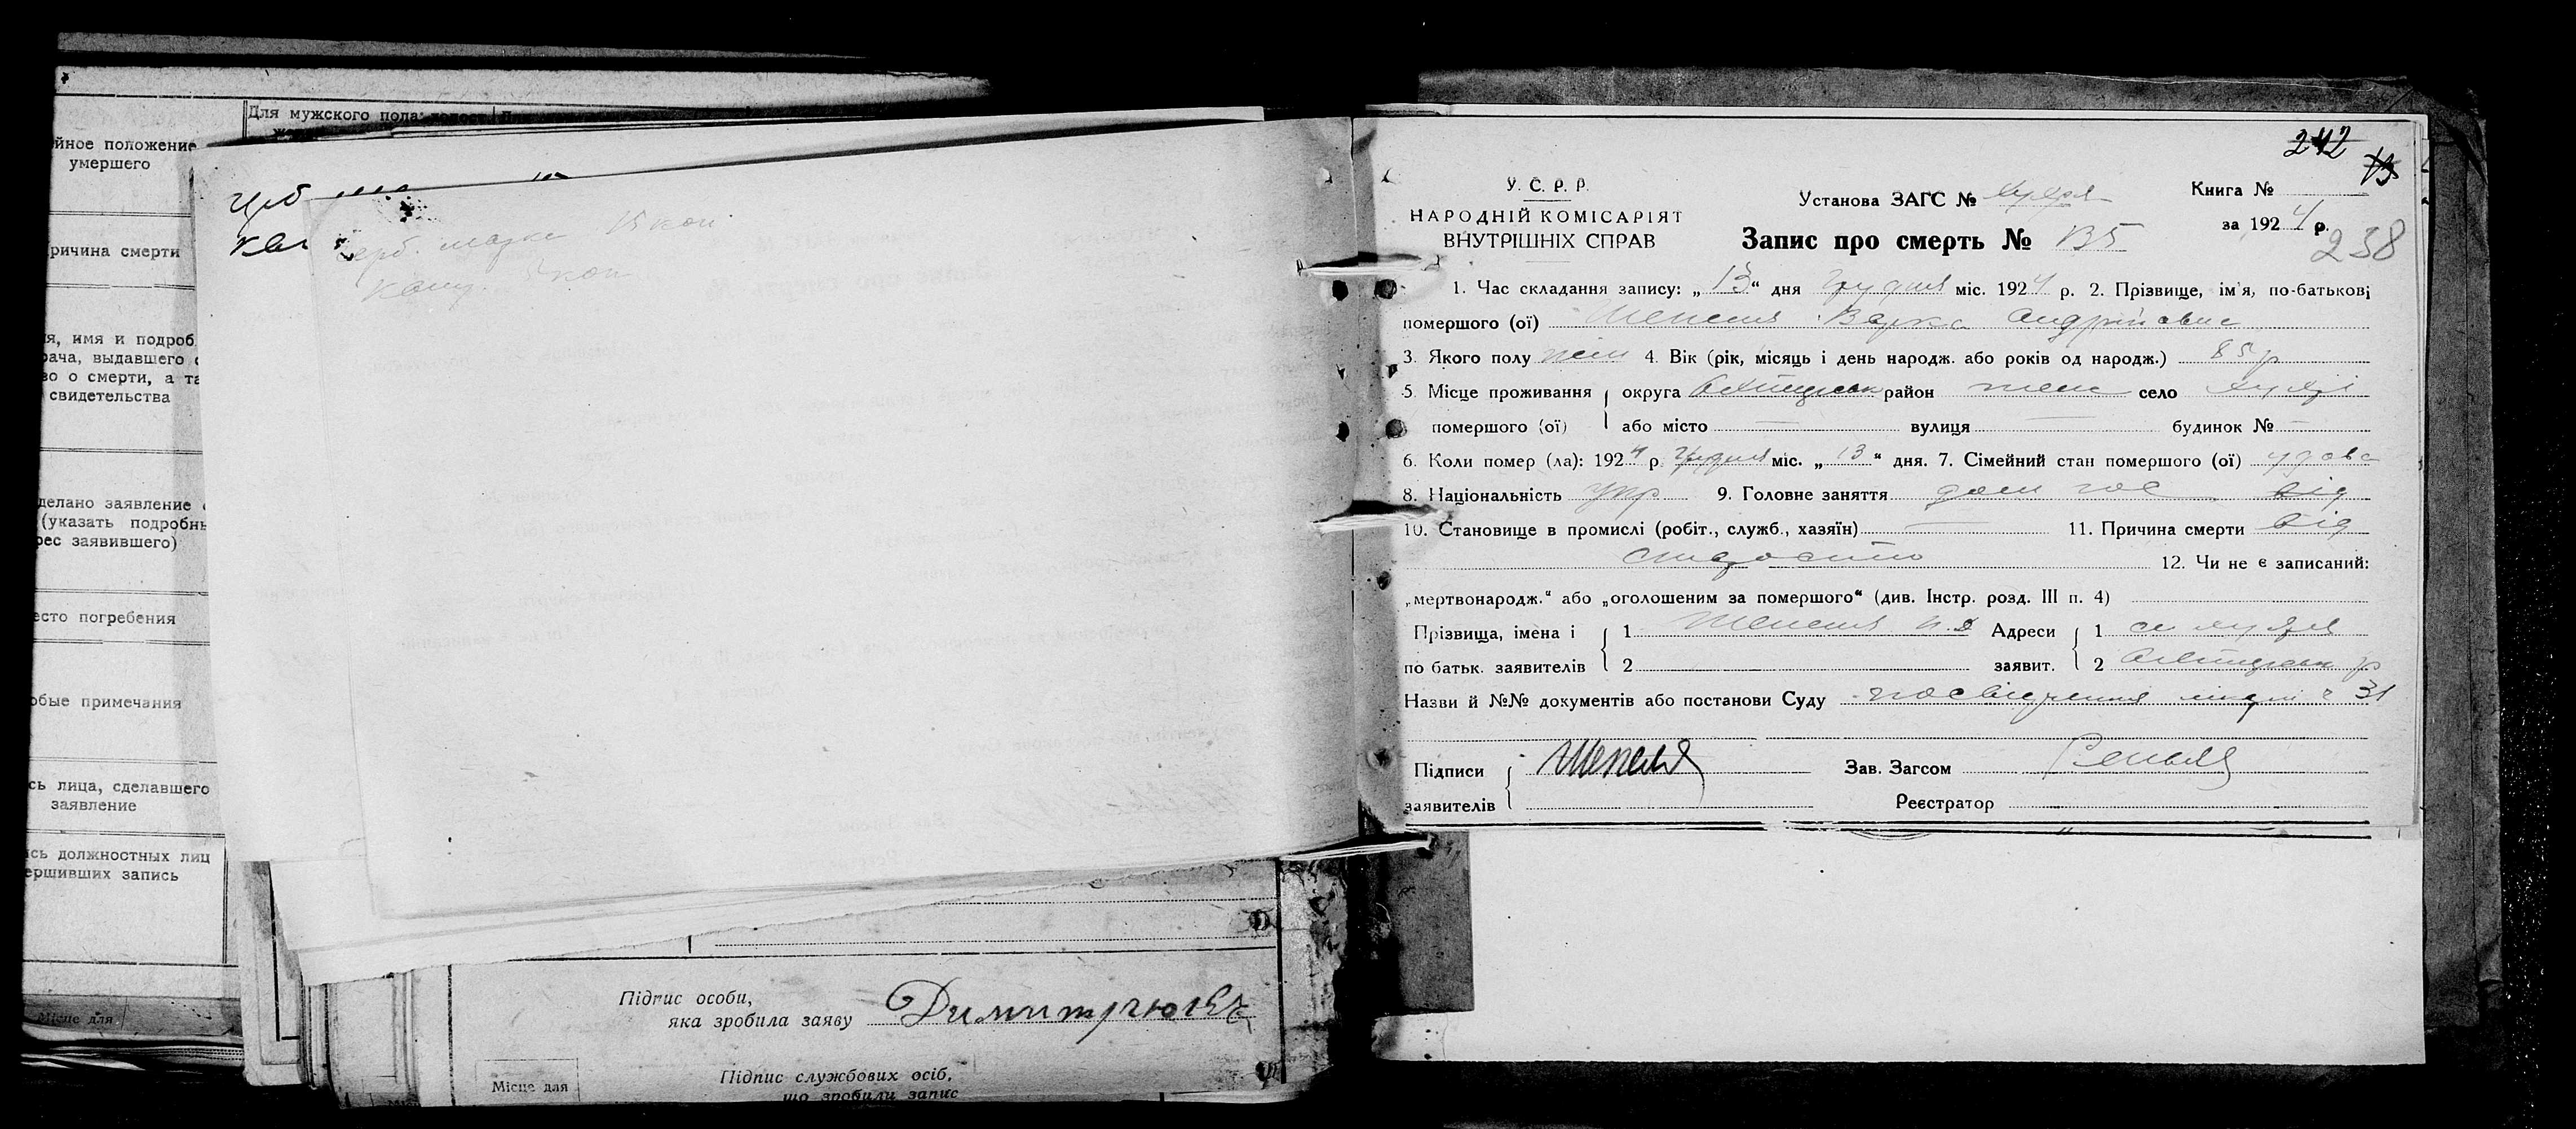 Для мужского пола
йное положение
умершего
ричина смерти
я, имя и подроб
рача, выдавшего
во о смерти, а та
свидетельства
делано заявление
(указать подробн
рес заявившего)
есто погребения
обые примечания
сь лица, сделавшего
заявление
сь должностных лиц
ершивших запись
Місце для
герб. марка 15 коп
канц. 5 коп
Підпис особи,
яка зробила заяву
Місце для
Підпис службових осіб,
що зробили запис
242
13
У. С. Р. Р.
НАРОДНІЙ КОМІСАРІЯТ
ВНУТРІШНІХ СПРАВ
Установа ЗАГС №
Запис про смерть № 135
Книга №
за 1924 р.
238
1. Час складання запису: „13“ дня грудня міс. 1924 р. 2. Прізвище, ім'я, по-батькові
помершого (ої) Шепеля Варка Андріївна
3. Якого полу жін 4. Вік (рік, місяць і день народж. або років од народж.) 85 р
5. Місце проживання округа район село
помершого (ої) або місто — вулиця — будинок № —
6. Коли помер (ла): 1924 р грудня міс. „13“ дня. 7. Сімейний стан помершого (ої) удова
8. Національність укр 9. Головне заняття дом гос від
10. Становище в промислі (робіт., служб., хазяїн) — 11. Причина смерти від
старости 12. Чи не є записаний:
„мертвонародж.“ або „оголошеним за помершого“ (див. Інстр. розд. III п. 4)
Прізвища, імена і 1 Шепеля Адреси 1
по батьк. заявителів 2 заявит. 2
Назви й №№ документів або постанови Суду посвідчення 31
Підписи Шепеля Зав. Загсом
заявителів Реєстратор